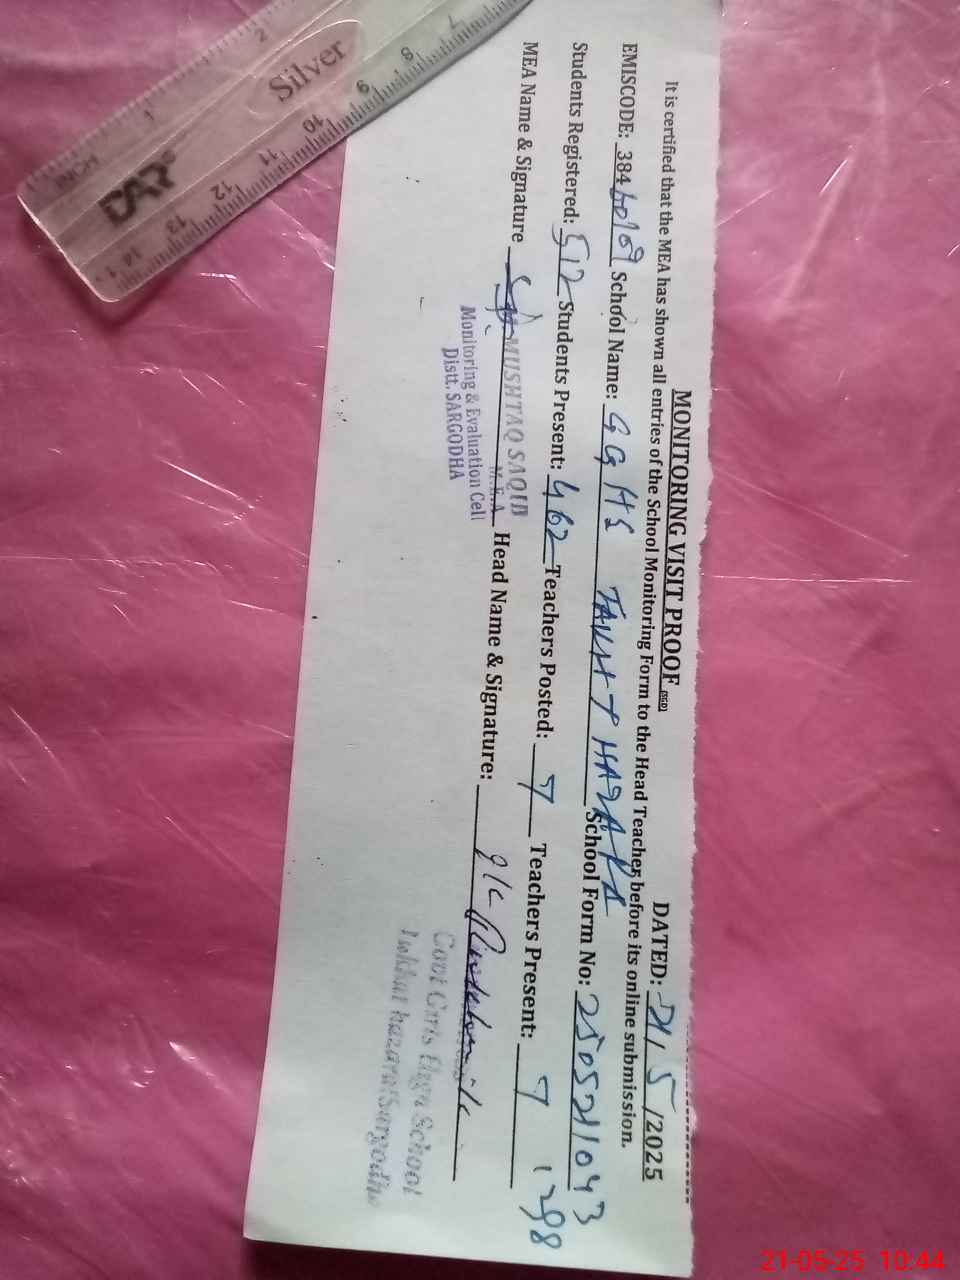 MONITORING VISIT PROOF (SGD) DATED: 21/5/2025
It is certified that the MEA has shown all entries of the School Monitoring Form to the Head Teacher before its online submission.
EMISCODE: 384 60109 School Name: GGHS TAKHT HAZARA School Form No: 250521104 3
Students Registered: 512 Students Present: 462 Teachers Posted: 7 Teachers Present: 7 1298
MEA Name & Signature MUSHTAQ SAQIB Head Name & Signature: I/C
M.E.A
Monitoring & Evaluation Cell
Distt. SARGODHA
Govt Girls High School
Takhat hazara (Sargodha
Silver
DAR
1 2 7 8 9 10 11 12 13 14
21-05-25 10:44